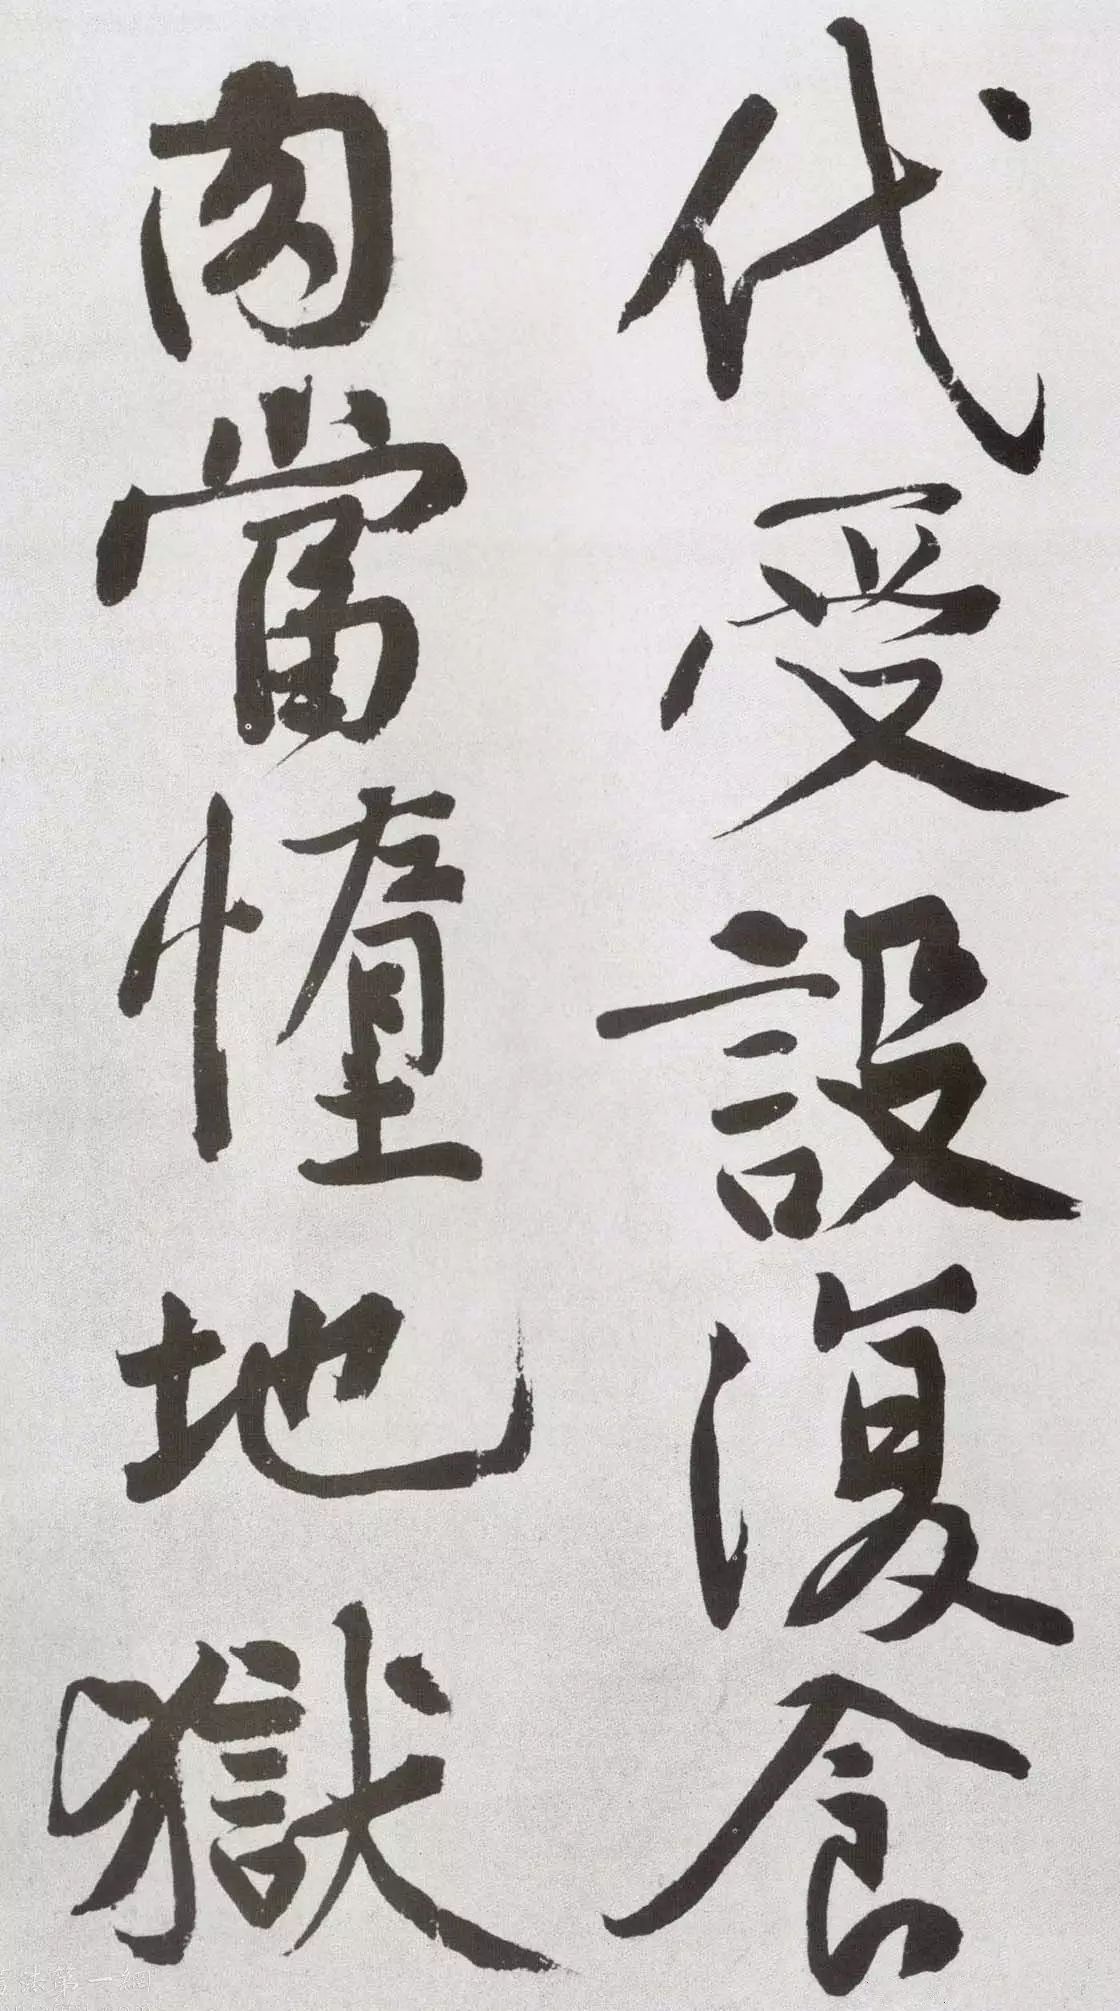 代受設復食
肉當憧地獄
書法第一網